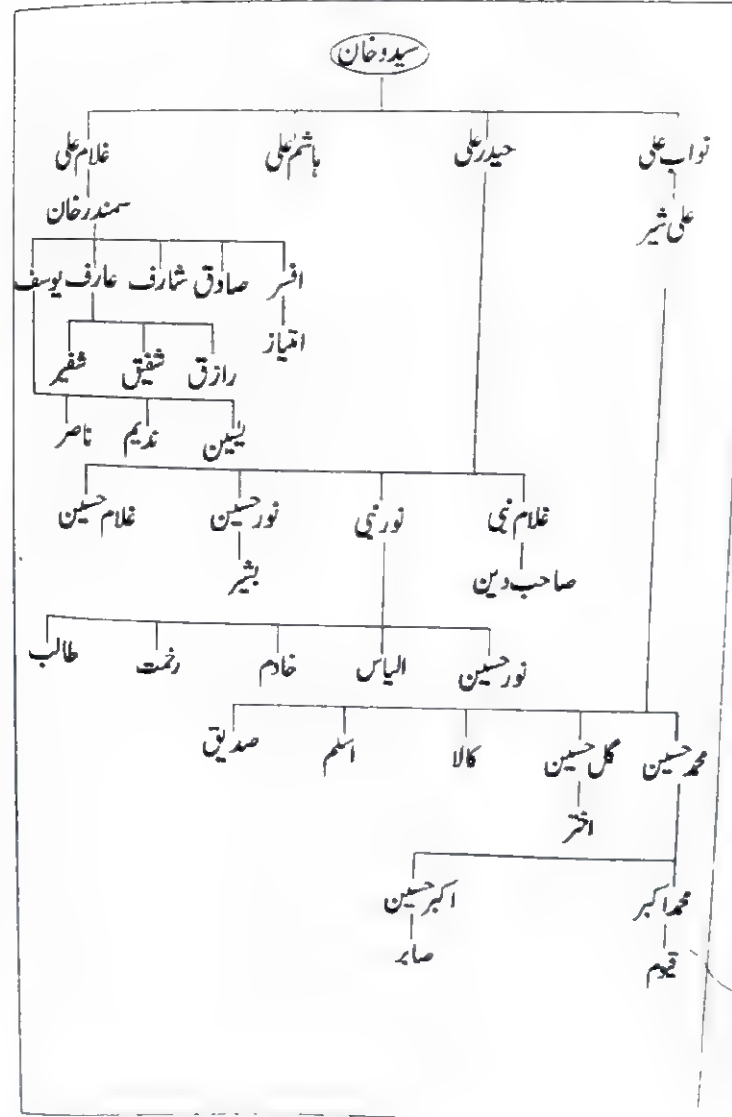 سیدوخان
نواب علی حیدر علی ہاشم علی غلام علی
علی شیر سمندر خان
افسر صادق شارف عارف یوسف
امتیاز
رازق شفیق شفیر
یٰسین ندیم ناصر
غلام نبی نور نبی نور حسین غلام حسین
صاحب دین بشیر
نور حسین الیاس خادم رخمت طالب
محمد حسین گل حسین کالا اسلم صدیق
اختر
محمد اکبر اکبر حسین
قیوم صابر